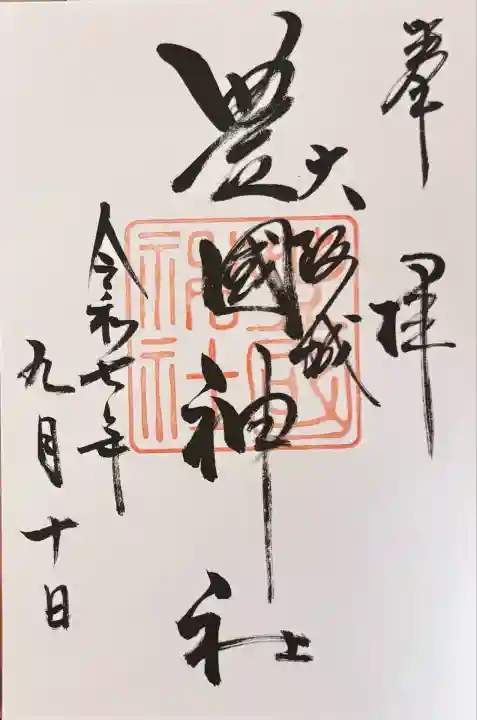 奉拝
大阪城
豊國神社
令和七年
九月十日
豊國神社